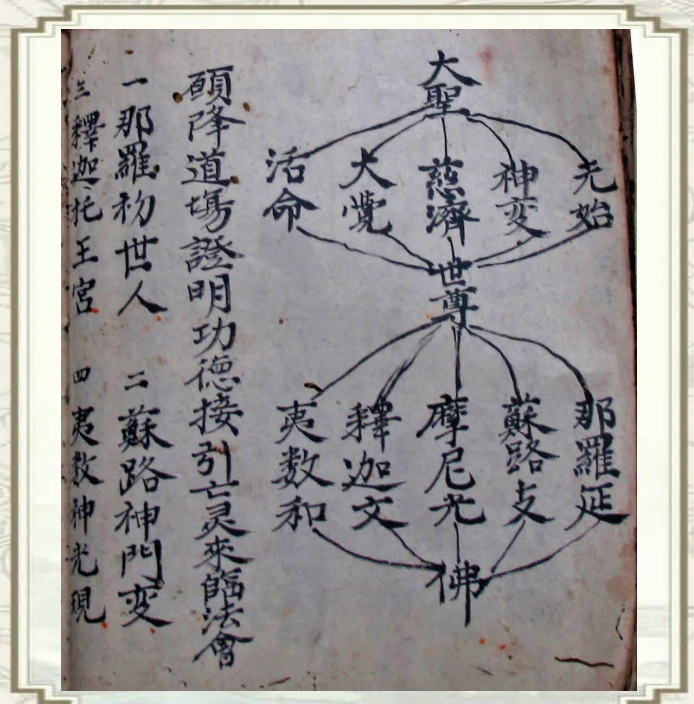 大聖
元始
神変
慈濟
大覚
活命
世尊
那羅延
蘇路支
摩尼光
釋迦文
夷数和
佛
願降道塲證明功德接引亡灵來臨法會
一那羅初世人 二蘇路神門変
三釋迦托王宮 四夷数神光現